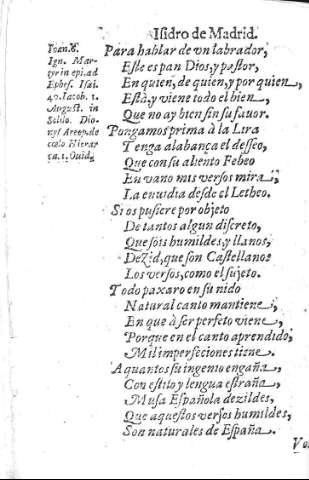 Isidro de Madrid.
Ioan. 8.
Ign. Mar-
tyr in epi. ad
Ephes. Isai.
40. Iacob. 1.
August. in
Solilo. Dio-
nys. Areop. de
cælo Hierar
Ouid.
Para hablar de vn labrador,
Este es pan Dios, y pastor,
En quien, de quien, y por quien,
Està, y viene todo el bien,
Que no ay bien sin su fauor.
Pongamos prima à la Lira
Tenga alabança el desseo,
Que con su aliento Febeo
En vano mis versos mira,
La enuidia desde el Letheo.
Si os pusiere por objeto
De tantos algun discreto,
Que sois humildes, y llanos,
Dezid, que son Castellanos
Los versos, como el sujeto.
Todo paxaro en su nido
Natural canto mantiene,
En que à ser perfeto viene,
Porque en el canto aprendido,
Mil imperfeciones tiene.
A quantos su ingenio engaña,
Con estilo y lengua estraña,
Musa Española dezildes,
Que aquestos versos humildes,
Son naturales de España.